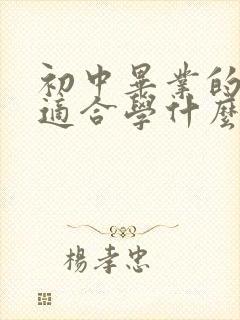 初中畢業的
適合學什麼
楊孝忠